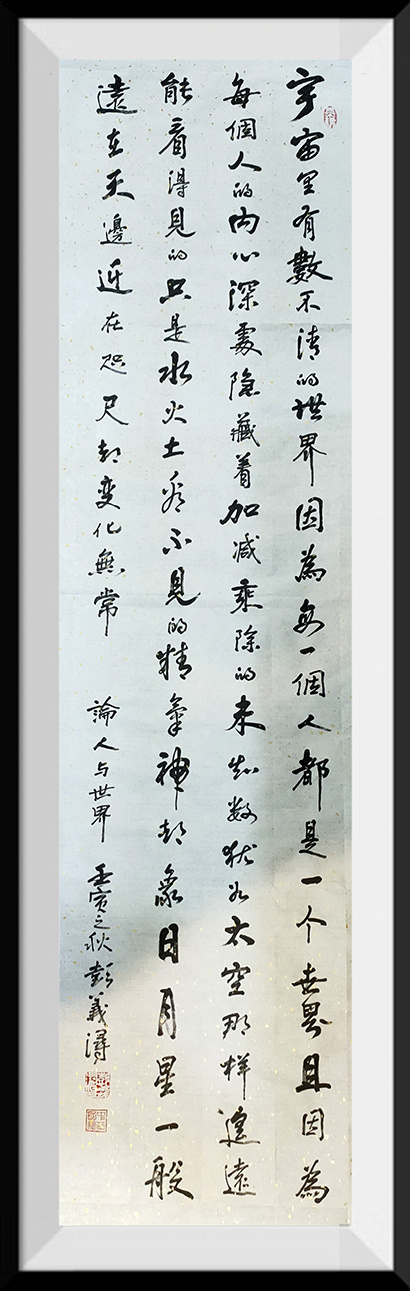 宇宙里有數不清的世界因為每一個人都是一个世界且因為
每個人的內心深處隐藏着加减乘除的未知数犹如太空那样遥遠
能看得見的只是水火土看不見的精氣神都象日月星一般
遠在天邊近在咫尺都变化無常
論人与世界
壬寅之秋彭義濤